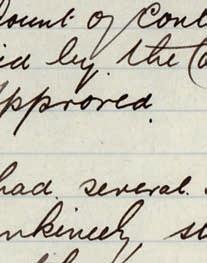 ount of Cont
id by the C
pproved.
had several
nkinely, s